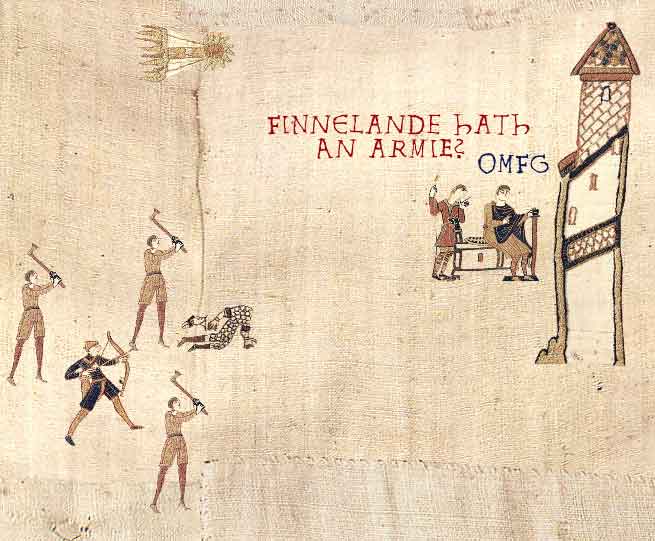 FINNELANDE hATh
AN ARMIE?
OMFG